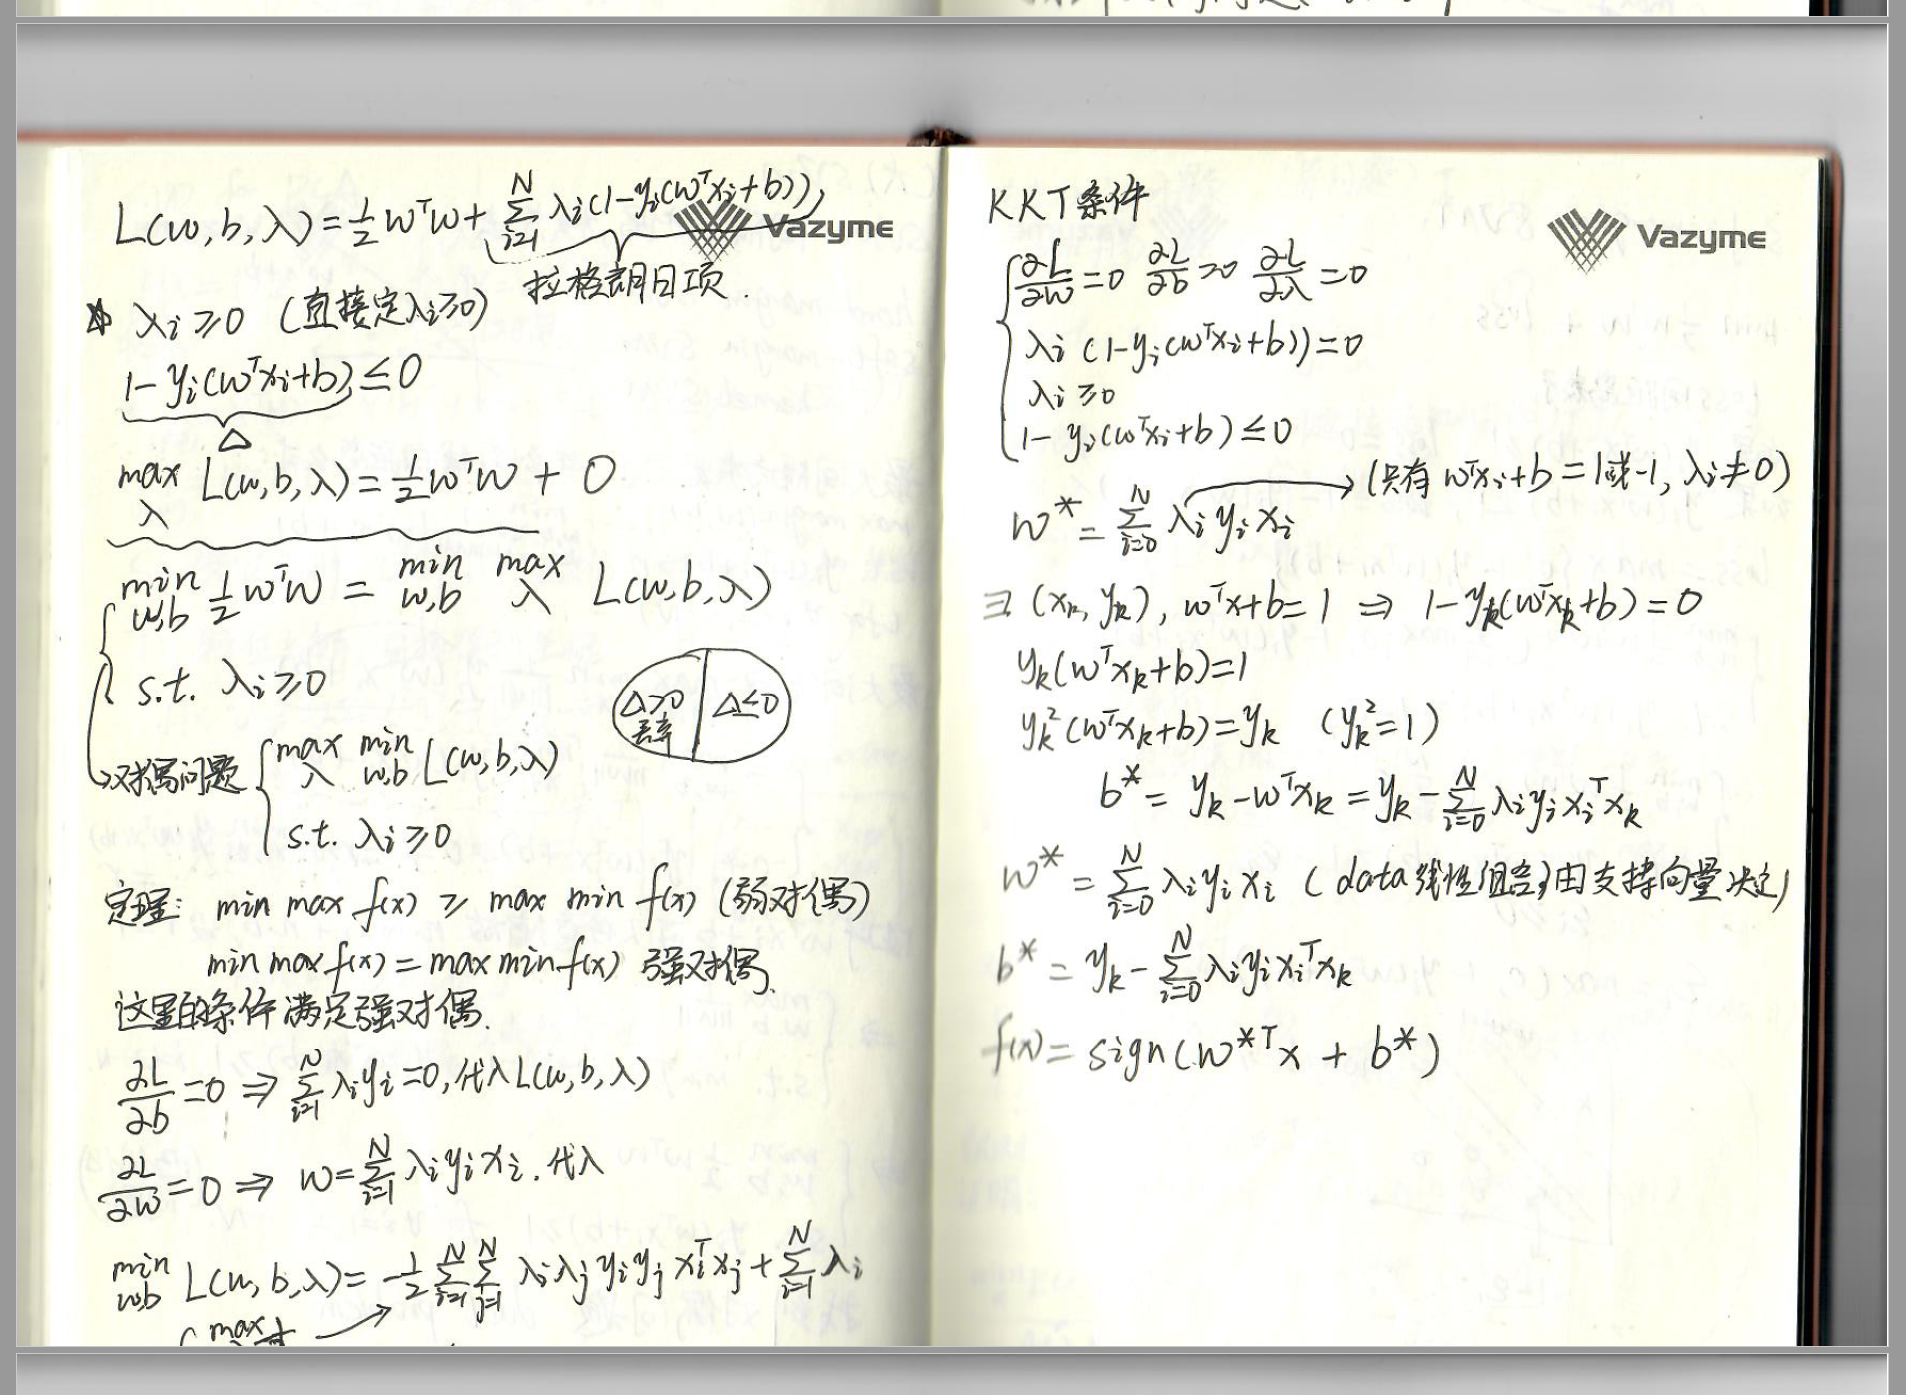 L(w,b,λ)=½wᵀw+∑ᵢ₌₁ᴺ λᵢ(1-yᵢ(wᵀxᵢ+b))
Vazyme
拉格朗日项.
λᵢ≥0 (直接定λᵢ≥0)
1-yᵢ(wᵀxᵢ+b)≤0
Δ
max L(w,b,λ)=½wᵀw+0
λ
min ½wᵀw = min max L(w,b,λ)
w,b w,b λ
s.t. λᵢ≥0
Δ>0 Δ≤0
丢弃
对偶问题 max min L(w,b,λ)
λ w,b
s.t. λᵢ≥0
定理: min max f(x) ≥ max min f(x) (弱对偶)
min max f(x) = max min f(x) 强对偶.
这里的条件满足强对偶.
∂L/∂b=0 ⇒ ∑ᵢ₌₁ᴺ λᵢyᵢ=0,代入L(w,b,λ)
∂L/∂w=0 ⇒ w=∑ᵢ₌₁ᴺ λᵢyᵢxᵢ.代入
min L(w,b,λ)=-½∑ᵢ₌₁ᴺ∑ⱼ₌₁ᴺ λᵢλⱼyᵢyⱼxᵢᵀxⱼ+∑ᵢ₌₁ᴺ λᵢ
w,b
max
KKT条件
Vazyme
∂L/∂w=0 ∂L/∂b=0 ∂L/∂λ=0
λᵢ(1-yᵢ(wᵀxᵢ+b))=0
λᵢ≥0
1-yᵢ(wᵀxᵢ+b)≤0
(只有 wᵀxᵢ+b=1或-1, λᵢ≠0)
w*=∑ᵢ₌₀ᴺ λᵢyᵢxᵢ
∃ (xₖ,yₖ), wᵀx+b=1 ⇒ 1-yₖ(wᵀxₖ+b)=0
yₖ(wᵀxₖ+b)=1
yₖ²(wᵀxₖ+b)=yₖ (yₖ²=1)
b*=yₖ-wᵀxₖ=yₖ-∑ᵢ₌₀ᴺ λᵢyᵢxᵢᵀxₖ
w*=∑ᵢ₌₀ᴺ λᵢyᵢxᵢ (data线性组合,由支持向量决定)
b*=yₖ-∑ᵢ₌₀ᴺ λᵢyᵢxᵢᵀxₖ
f(x)=sign(w*ᵀx+b*)